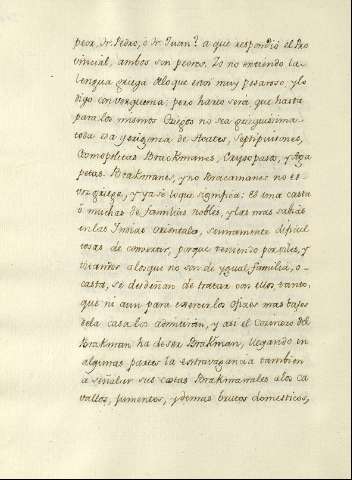 peor, Fr. Pedro, ò Fr. Juan? a que respondiò el Pro
vincial, ambos son peores. Yo no entiendo la
lengua griega de lo que estoi muy pesaroso y lo
digo con verguenza; pero harto serà que hasta
para los mismos Griegos no sea
toda esa gerigonza de Hoates,
Brackmanes, y Aga
petas. Brakmanes, y no Bracamanes no es
voz griega, y ya sè lo que significa: Es una casta
ò muchas de familias nobles, y las mas sabias
en las Indias orientales, sumamente dificul
tosas de convertir, porque teniendo por viles, y
villanos a los que no son de ygual familia, o
casta, se desdeñan de tratar con ellos, tanto,
que ni aun para exercer los oficios mas bajos
de la casa los admitiràn, y asi el cocinero del
Brakman ha de ser Brakman, llegando en
algunas partes la extravagancia tambien
a señalar sus castas Brakmanales a los ca
vallos, jumentos, y demas brutos domesticos,